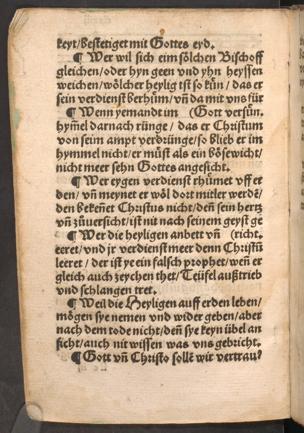 keyt/bestetiget mit Gottes eyd.
¶ Wer wil sich eim sölchen Bischoff
gleichen/oder hyn geen vnd yhn heyssen
weichen/wölcher heylig ist so kün/ das er
sein verdienst berhüm/vñ da mit vns für
¶ Wenn yemandt im (Gott versün.
hym̃el darnach rünge/ das er Christum
von seim ampt verdrünge/so blieb er im
hymmel nicht/er müst alß ein bösewicht/
nicht meer sehn Gottes angesicht.
¶ Wer eygen verdienst rhümet vff er
den/ vñ meynet er wöl dort mitler werdẽ/
den bekeñet Christus nicht/deñ sein hertz
vñ zůuersicht/ist nit nach seinem geyst ge
¶ Wer die heyligen anbett vñ (richt.
eeret/vnd jr verdienst meer denn Christũ
leeret/ der ist ye ein falsch prophet/weñ er
gleich auch zeychen thet/Teüfel außtrieb
vnd schlangen tret.
¶ Weil die Heyligen auff erden leben/
mögen sye nemen vnd wider geben/aber
nach dem tode nicht/deñ sye keyn übel an
ficht/auch nit wissen was vns gebricht.
¶ Gott vñ Christo sollẽ wir vertrau?